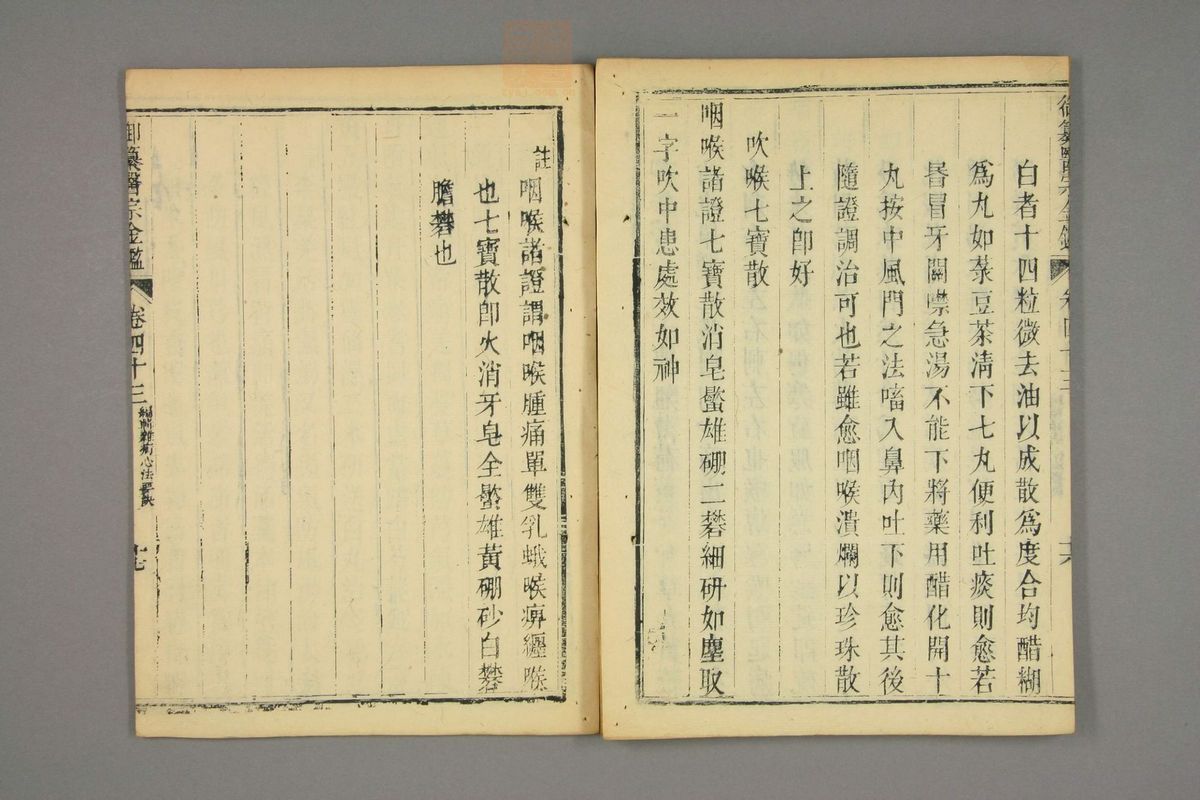 白者十四粒微去油以成散爲度合均醋糊
爲丸如菉豆茶清下七丸便利吐痰則愈若
昏冒牙關噤急湯不能下將藥用醋化開十
丸按中風門之法㗜入鼻內吐下則愈其後
隨證調治可也若雖愈咽喉潰爛以珍珠散
上之卽好
吹喉七寶散
咽喉諸證七寶散消皂蠍雄硼二礬細研如塵取
一字吹中患處效如神
註 咽喉諸證謂咽喉腫痛單雙乳蛾喉痹纏喉
也七寶散卽火消牙皂全蠍雄黃硼砂白礬
膽礬也
御纂醫宗金鑑 卷四十三 編輯雜病心法要訣